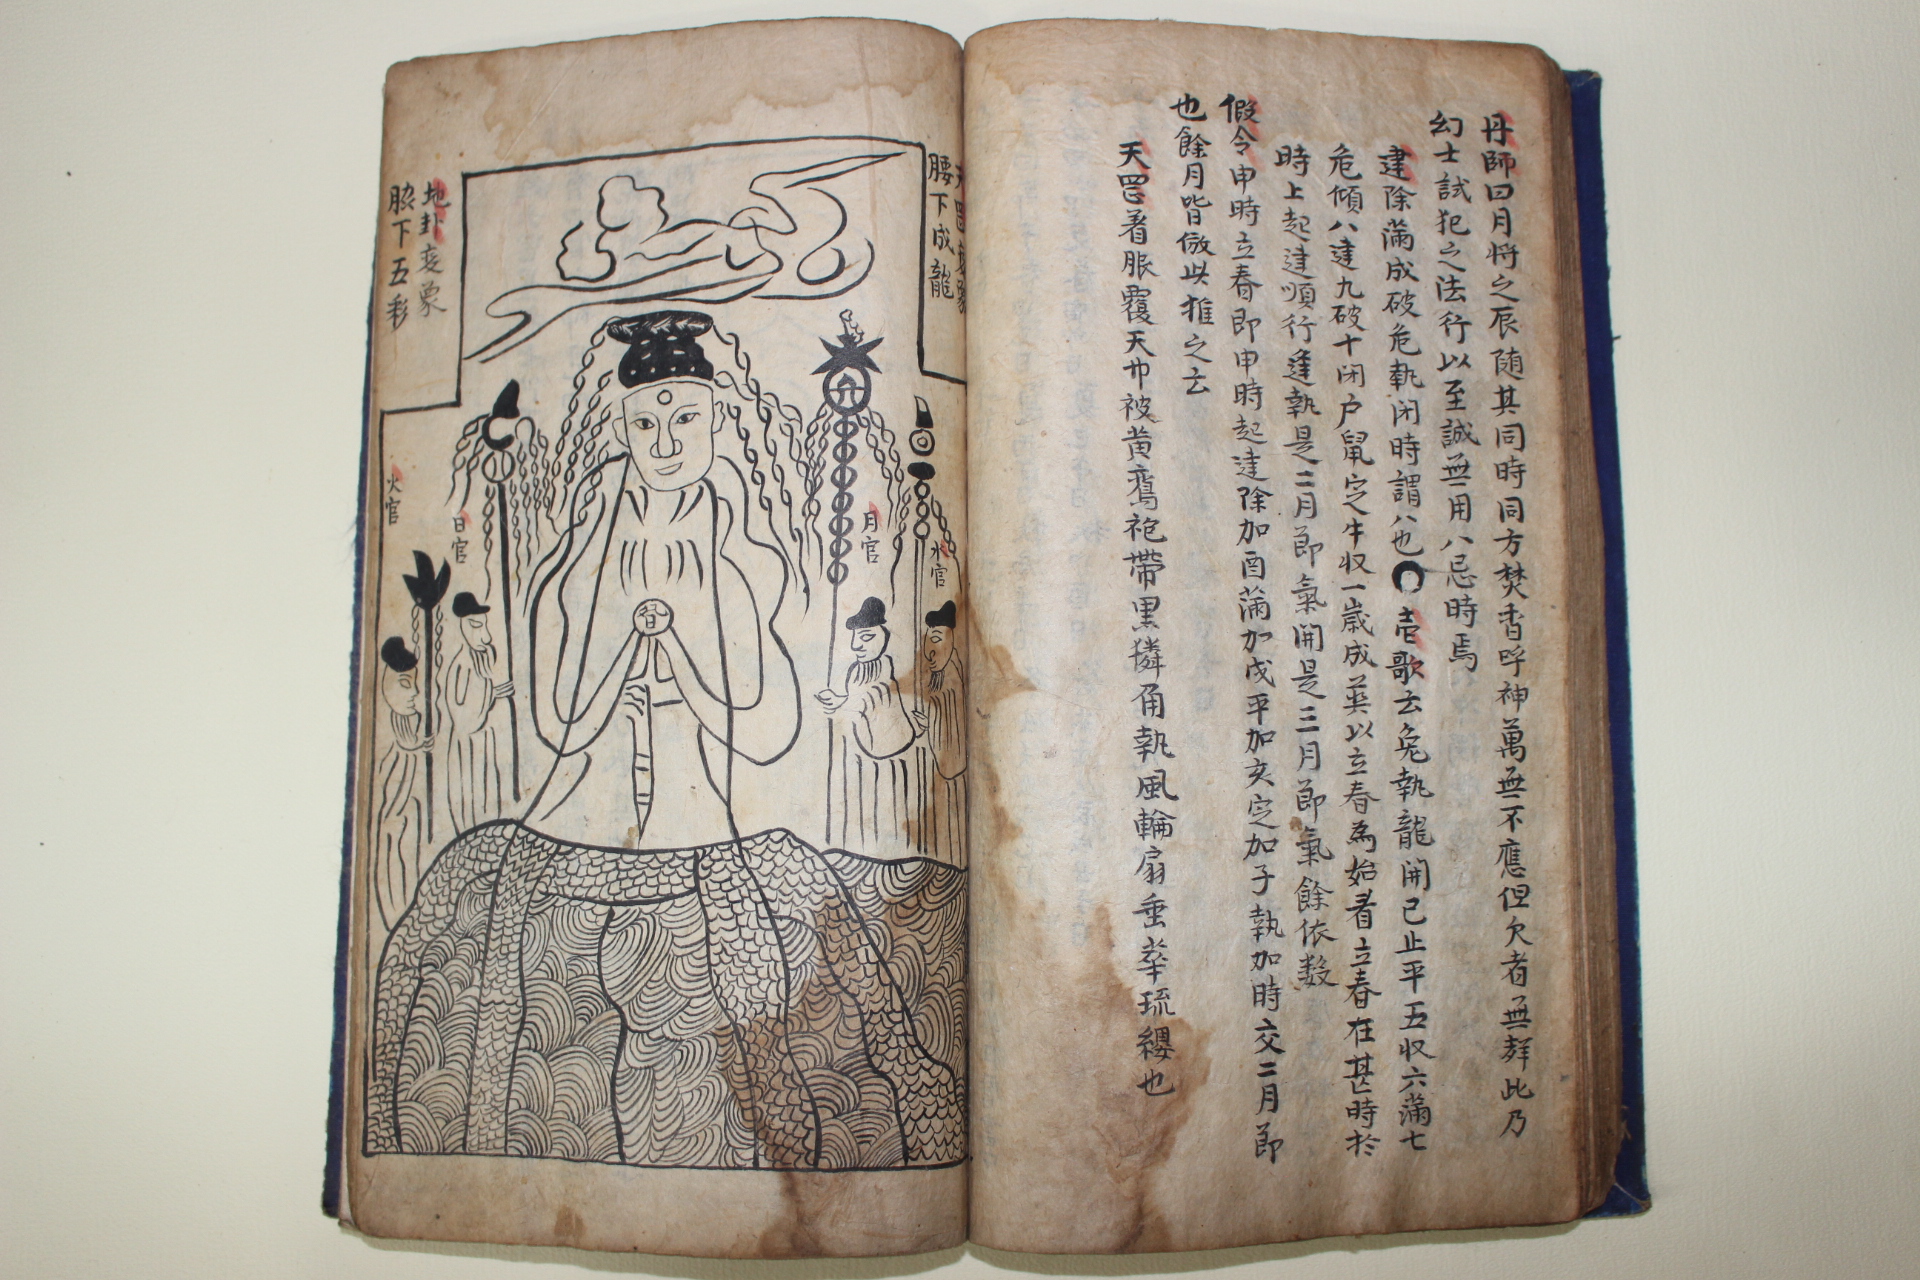 丹師曰月将之辰随其同時同方焚香呼神萬無不應但欠者無群此乃
幻士試犯之法行以至誠無用八忌時焉
建除滿成破危執闭時謂八也 壱歌云兔執龍開已止平五収六滿七
危傾八建九破十闭户鼠定牛収一歳成英以立春為始看立春在甚時於
時上起建順行逢執是二月節氣開是三月節氣餘依数
假令申時立春即申時起建除加酉滿加戌平加亥定加子執加時交二月節
也餘月皆倣此推之云
天罡着眼覆天卯被黄鸞袍帶黒獜甬執風輪扇垂崋琉纓也
天罡変象
腰下成龍
地卦変象
脇下五彩
水官
月官
日官
火官